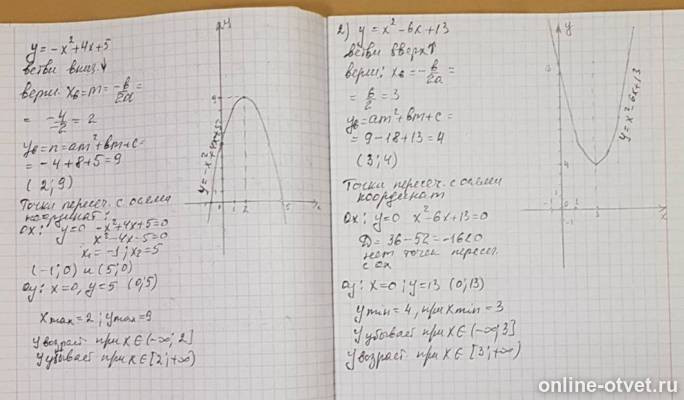 y = -x² + 4x + 5
ветви вниз ↓
верш. xв = m = -b/2a =
= -4/-2 = 2
yв = n = am² + bm + c =
= -4 + 8 + 5 = 9
(2; 9)
Точки пересеч. с осями
координат:
Ox: y=0 -x²+4x+5=0
x²-4x-5=0
x₁=-1; x₂=5
(-1; 0) и (5; 0)
Oy: x=0, y=5 (0;5)
xmax = 2; ymax = 9
y возраст при x ∈ (-∞; 2]
y убывает при x ∈ [2; +∞)
y
9
y = -x² + 4x + 5
2
5
x
2) y = x² - 6x + 13
ветви вверх ↑
верш: xв = -b/2a =
= 6/2 = 3
yв = am² + bm + c =
= 9 - 18 + 13 = 4
(3; 4)
Точки пересеч. с осями
координат
Ox: y=0 x²-6x+13=0
D = 36-52 = -16<0
нет точек пересеч.
с ox
Oy: x=0; y=13 (0; 13)
ymin = 4, при xmin = 3
y убывает при x ∈ (-∞; 3]
y возраст при x ∈ [3; +∞)
y
4
y = x² - 6x + 13
-1
1
3
x
-1
online-otvet.ru